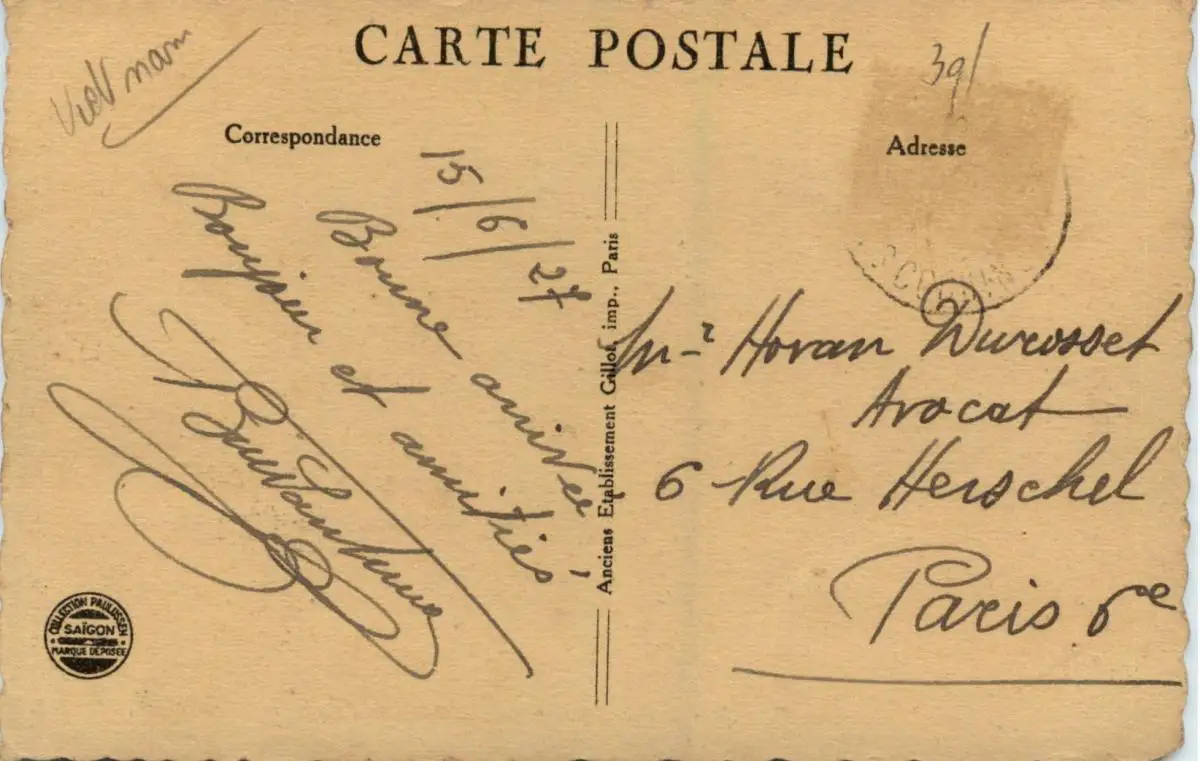 Viet nam
CARTE POSTALE
39/
Correspondance
Adresse
15/6/27
Bonne arrivée
Bonjour et amitiés
Anciens Etablissement Gillot, imp., Paris
Mr Horan Durosset
Avocat
6 Rue Herschel
Paris 6e
COLLECTION PAULUSSEN
SAÏGON
MARQUE DÉPOSÉE